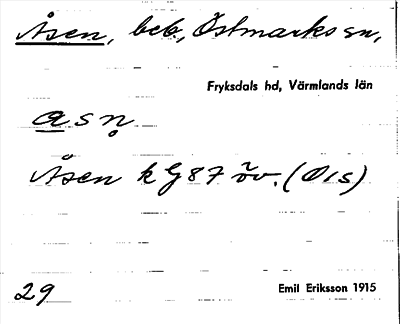 Åsen, beb., Östmarks sn,
Fryksdals hd, Värmlands län
a s n̥
Åsen k G 87 öv. (O1s)
29
Emil Eriksson 1915